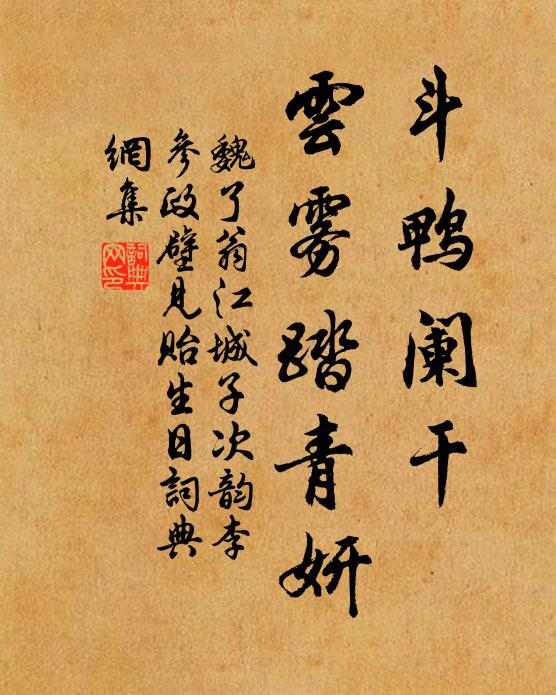 斗鴨闌干
雲雾踏青妍
魏了翁江城子次韵李
參政壁見貽生日詞典
網集
詞典
网印